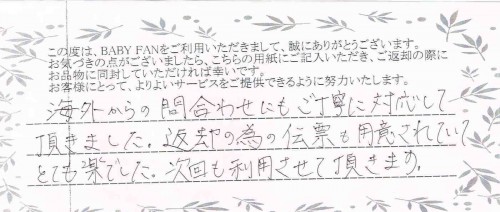 この度は、BABY FANをご利用いただきまして、誠にありがとうございます。
お気づきの点がございましたら、こちらの用紙にご記入いただき、ご返却の際に
お品物に同封していただければ幸いです。
お客様にとって、よりよいサービスをご提供できるように努力いたします。
海外からの問合わせにもご丁寧に対応して
頂きました。返却の為の伝票も用意されていて
とても楽でした。次回も利用させて頂きます。